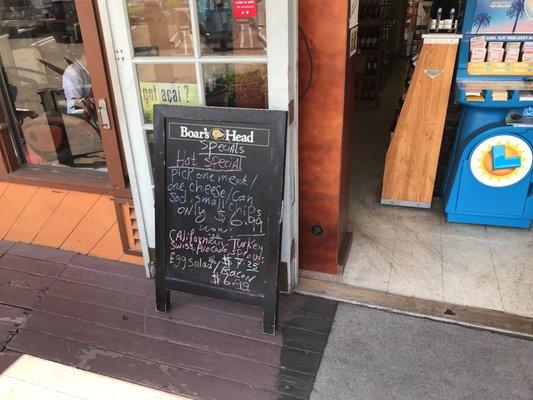 got açaí?
Boar's Head
Specials
Hot Special
Pick one meat/
one cheese/can
soda/small chips
only $6.99
wow!
Californian: Turkey
Swiss, Avocado, Sprout
$7.25
Egg salad/Bacon
$6.99